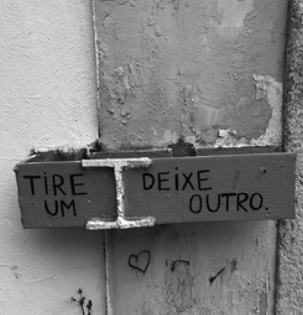 TIRE
UM
DEIXE
OUTRO.